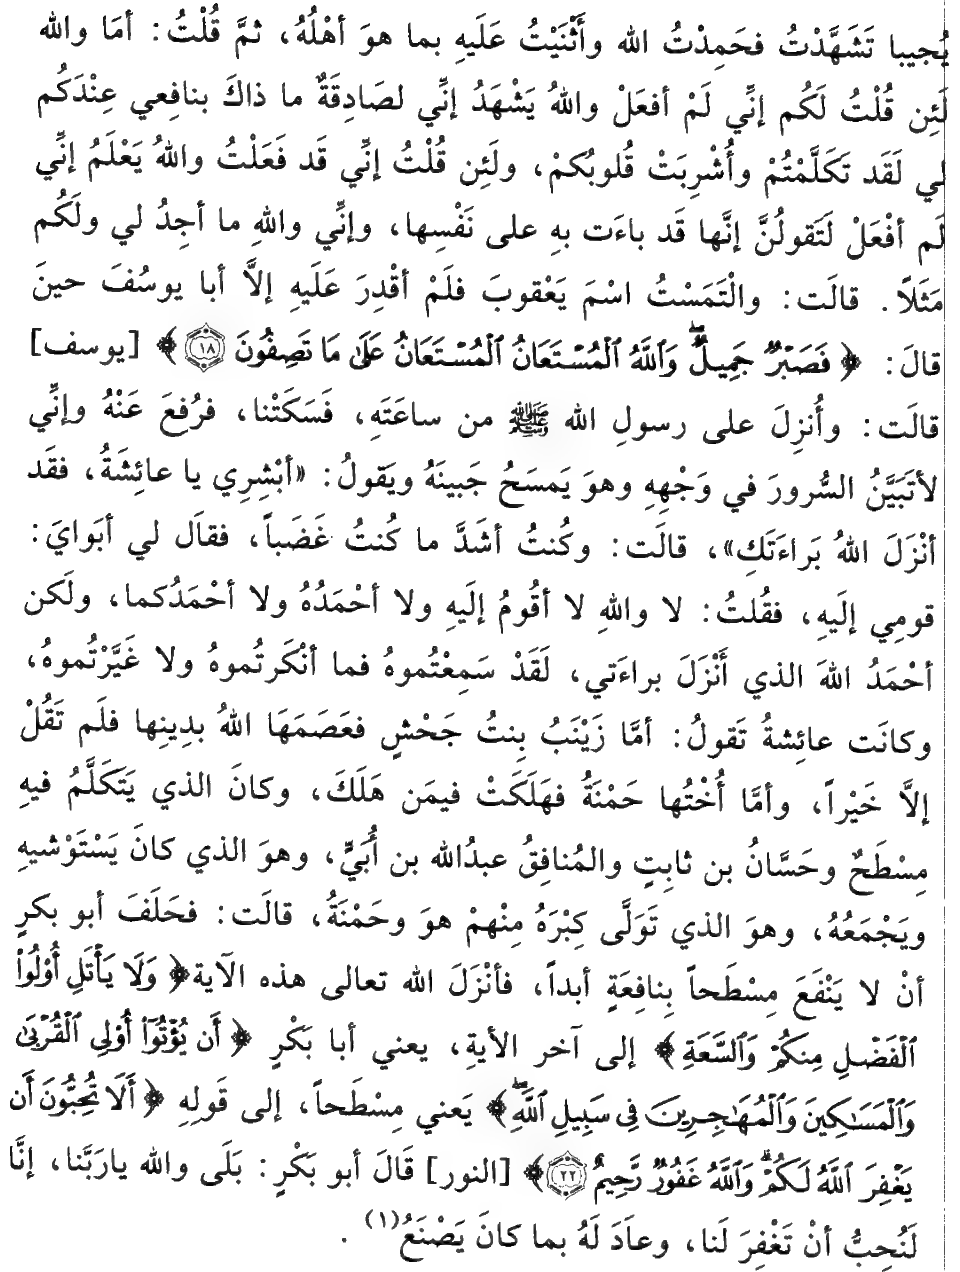 يُجيبا تَشَهَّدْتُ فحَمِدْتُ الله وأَثْنَيْتُ عَلَيهِ بما هوَ أهْلُهُ، ثمَّ قُلْتُ: أمَا والله
لَئِن قُلْتُ لَكُم إنِّي لَمْ أفعَلْ واللهُ يَشْهَدُ إنِّي لصَادِقَةٌ ما ذاكَ بنافِعي عِنْدَكُم
لي لَقَد تَكَلَّمْتُمْ وأُشْرِبَتْ قُلوبُكمْ، ولَئِن قُلْتُ إنِّي قَد فَعَلْتُ واللهُ يَعْلَمُ إنِّي
لَم أفْعَلْ لَتَقولُنَّ إنَّها قَد باءَت بهِ على نَفْسِها، وإنِّي واللهِ ما أجِدُ لي ولَكُم
مَثَلاً. قالَت: والْتَمَسْتُ اسْمَ يَعْقوبَ فلَمْ أقْدِرَ عَلَيهِ إلاَّ أبا يوسُفَ حينَ
قالَ: ﴿ فَصَبْرٌ جَمِيلٌ ۖ وَٱللَّهُ ٱلْمُسْتَعَانُ ٱلْمُسْتَعَانُ عَلَىٰ مَا تَصِفُونَ ١٨ ﴾ [يوسف]
قالَت: وأُنزِلَ على رسولِ الله ﷺ من ساعَتَهِ، فَسَكَتْنا، فرُفِعَ عَنْهُ وإنِّي
لأتَبَيَّنُ السُّرورَ في وَجْهِهِ وهوَ يَمسَحُ جَبينَهُ ويَقولُ: «أبْشِرِي يا عائِشَةُ، فقَد
أنْزَلَ اللهُ بَراءَتَكِ»، قالَت: وكُنتُ أشَدَّ ما كُنتُ غَضَباً، فقاَل لي أبَوايَ:
قومِي إلَيهِ، فقُلتُ: لا واللهِ لا أقُومُ إلَيهِ ولا أحْمَدُهُ ولا أحْمَدُكما، ولَكن
أحْمَدُ اللهَ الذي أَنْزَلَ براءَتي، لَقَدْ سَمِعْتُموهُ فما أنْكَرتُموهُ ولا غَيَّرْتُموهُ،
وكانَت عائِشةُ تَقولُ: أمَّا زَيْنَبُ بِنتُ جَحْشٍ فعَصَمَهَا اللهُ بدِينِها فلَم تَقُلْ
إلاَّ خَيْراً، وأمَّا أُخْتُها حَمْنَةُ فهَلَكَتْ فيمَن هَلَكَ، وكانَ الذي يَتَكَلَّمُ فيهِ
مِسْطَحٌ وحَسَّانُ بن ثابِتٍ والمُنافِقُ عبدُالله بن أُبَيٍّ، وهوَ الذي كانَ يَسْتَوْشيهِ
ويَجْمَعُهُ، وهوَ الذي تَوَلَّى كِبْرَهُ مِنْهمْ هوَ وحَمْنَةُ، قالَت: فحَلَفَ أبو بكرٍ
أنْ لا يَنْفَعَ مِسْطَحاً بِنافِعَةٍ أبداً، فأنْزَلَ الله تعالى هذه الآية﴿ وَلَا يَأْتَلِ أُوْلُوا۟
ٱلْفَضْلِ مِنكُمْ وَٱلسَّعَةِ ﴾ إلى آخر الأيةِ، يعني أبا بَكْرٍ ﴿ أَن يُؤْتُوٓا۟ أُوْلِى ٱلْقُرْبَىٰ
وَٱلْمَسَـٰكِينَ وَٱلْمُهَـٰجِرِينَ فِى سَبِيلِ ٱللَّهِ ۖ ﴾ يَعني مِسْطَحاً، إلى قَولِهِ ﴿ أَلَا تُحِبُّونَ أَن
يَغْفِرَ ٱللَّهُ لَكُمْ ۗ وَٱللَّهُ غَفُورٌ رَّحِيمٌ ٢٢ ﴾ [النور] قَالَ أبو بَكْرٍ: بَلَى والله يارَبَّنا، إنَّا
لَنُحِبُّ أنْ تَغْفِرَ لَنا، وعاَدَ لَهُ بما كانَ يَصْنَعُ(١).